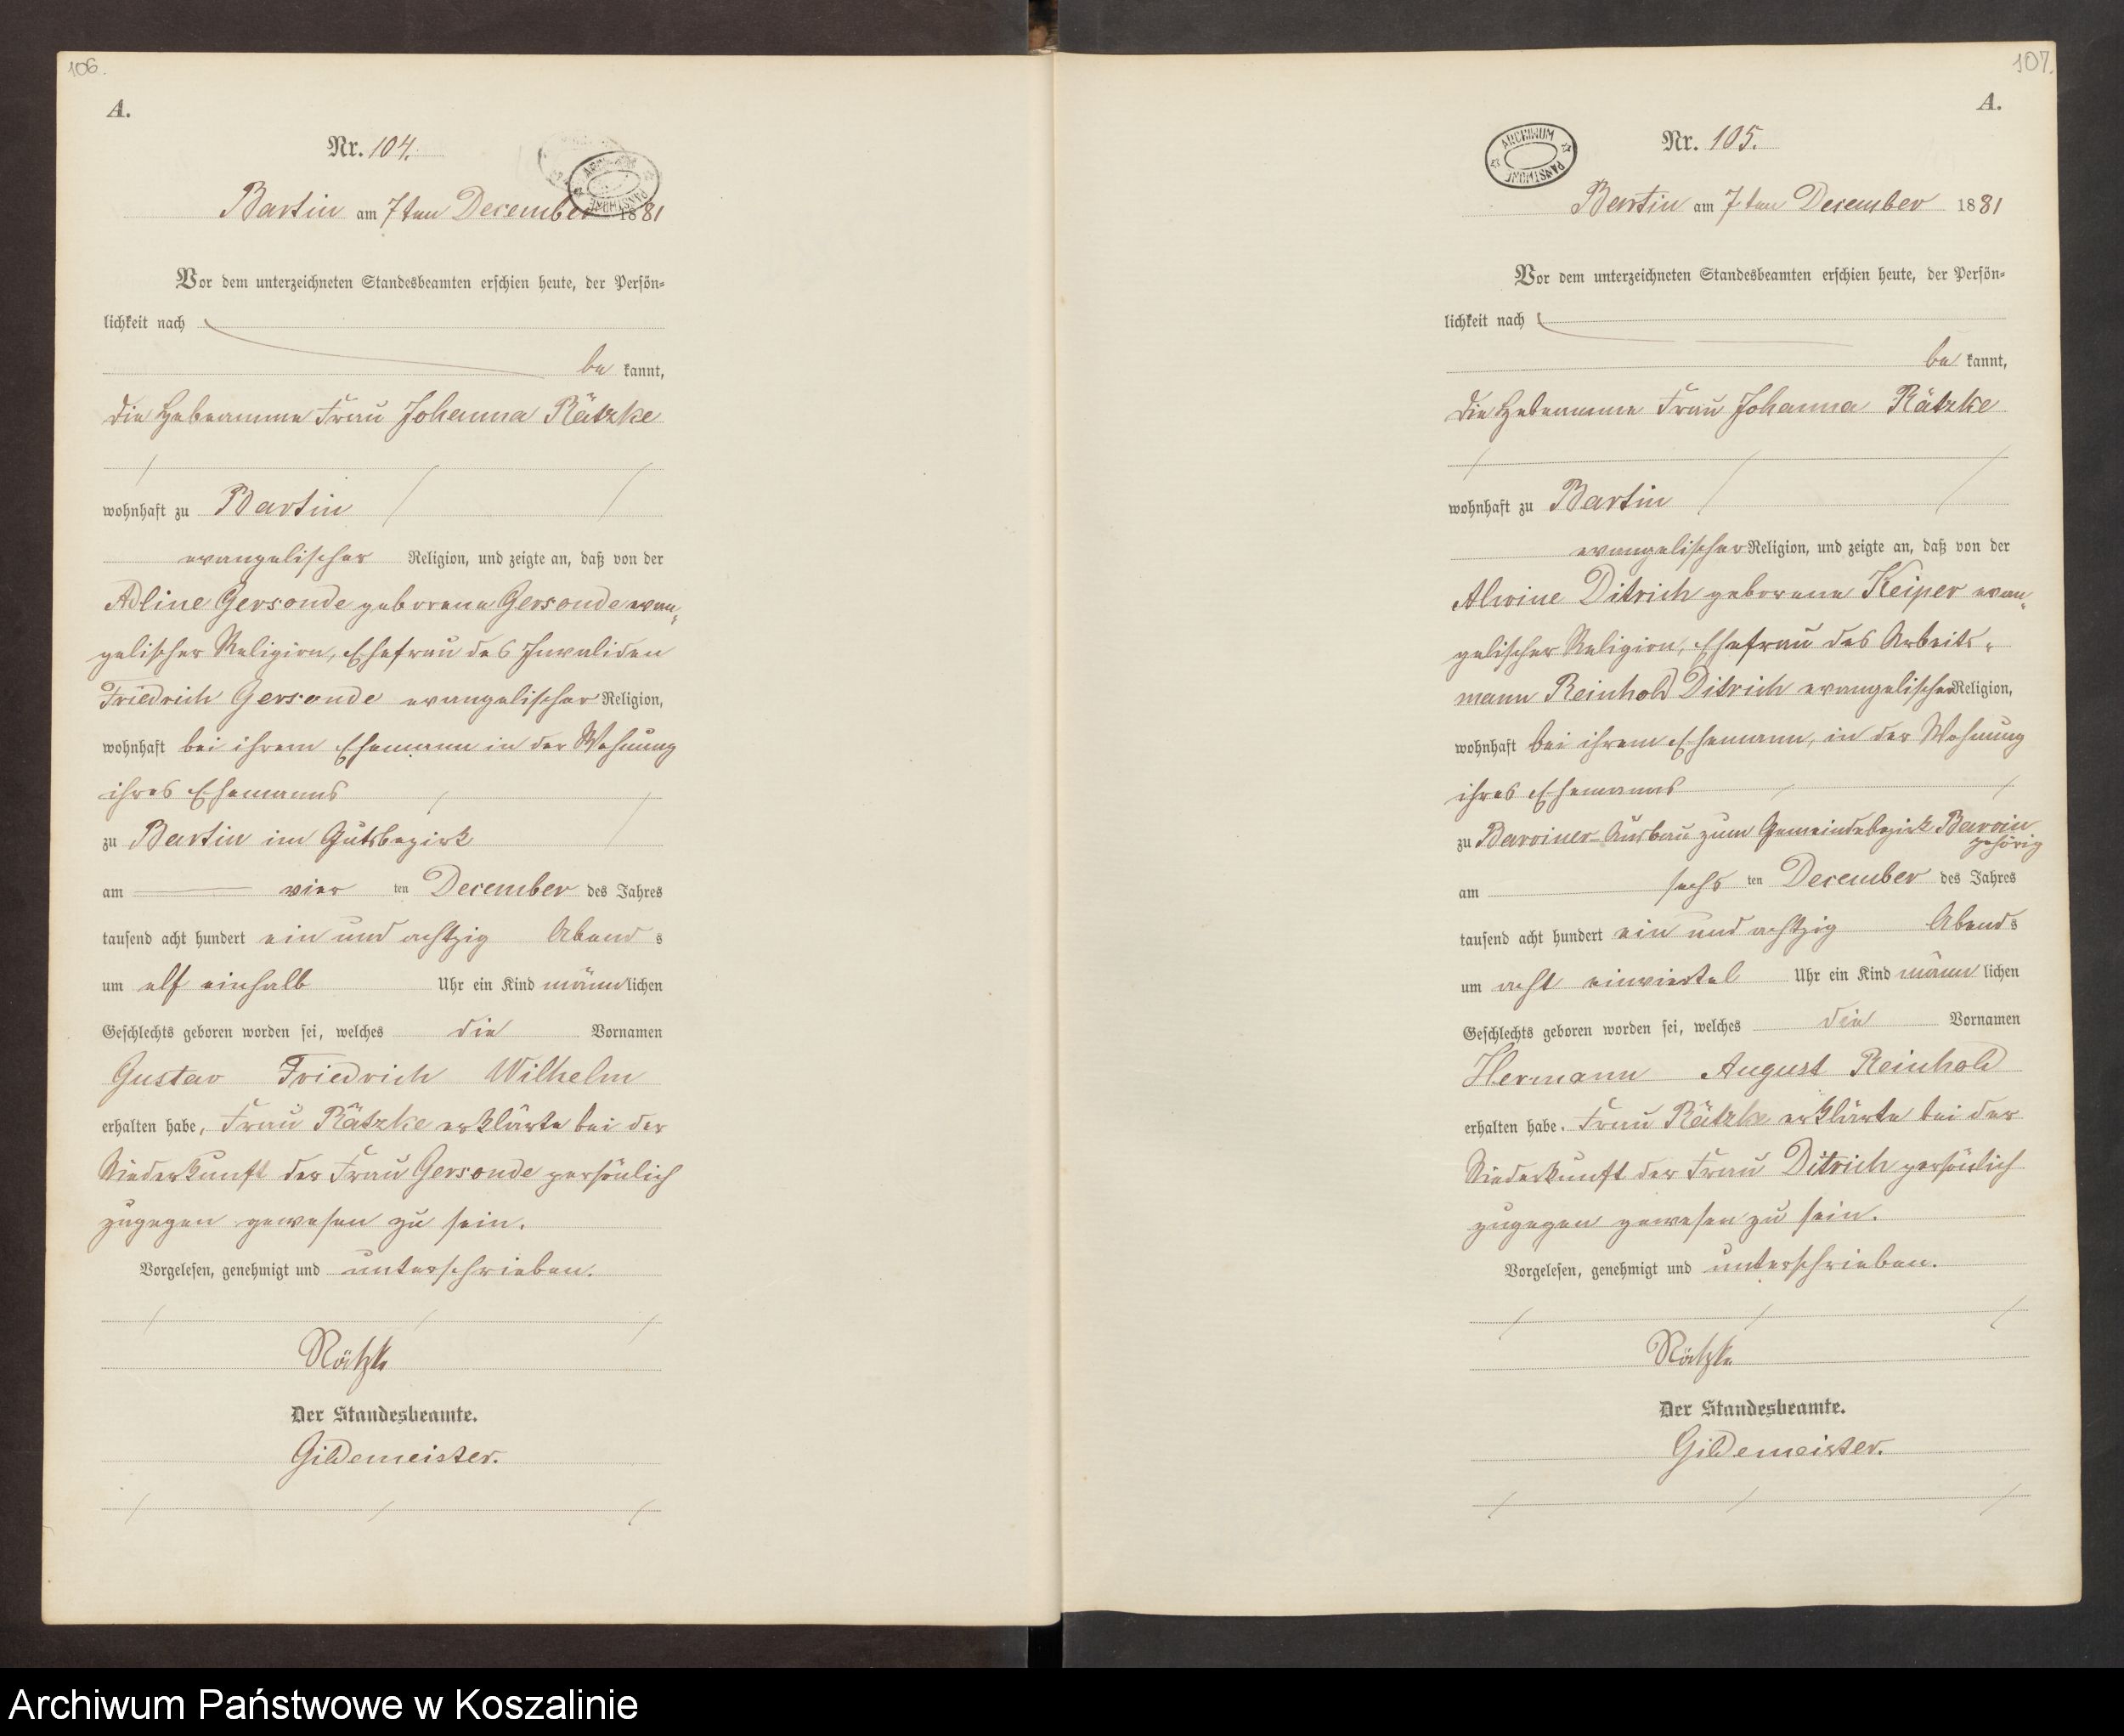 106.
A.
Nr. 104.
ARCHIWUM PAŃSTWOWE
Bartin am 7ten December 1881
Vor dem unterzeichneten Standesbeamten erschien heute, der Persön-
lichkeit nach
be kannt,
die Hebeamme Frau Johanna Rätzke
wohnhaft zu Bartin
evangelischer Religion, und zeigte an, daß von der
Adline Gersonde geborene Gersonde evan-
gelischer Religion, Ehefrau des Invaliden
Friedrich Gersonde evangelischer Religion,
wohnhaft bei ihrem Ehemann in der Wohnung
ihres Ehemanns
zu Bartin im Gutsbezirk
am vier ten December des Jahres
tausend acht hundert ein und achtzig Abend s
um elf einhalb Uhr ein Kind männlichen
Geschlechts geboren worden sei, welches die Vornamen
Gustav Friedrich Wilhelm
erhalten habe, Frau Rätzke erklärte bei der
Niederkunft der Frau Gersonde persönlich
zugegen gewesen zu sein.
Vorgelesen, genehmigt und unterschrieben.
Rätzke
Der Standesbeamte.
Gildemeister.
107.
A.
ARCHIWUM PAŃSTWOWE
Nr. 105.
Bartin am 7ten December 1881
Vor dem unterzeichneten Standesbeamten erschien heute, der Persön-
lichkeit nach
be kannt,
die Hebeamme Frau Johanna Rätzke
wohnhaft zu Bartin
evangelischer Religion, und zeigte an, daß von der
Alwine Ditrich geborene Keiper evan-
gelischer Religion, Ehefrau des Arbeits-
mann Reinhold Ditrich evangelischer Religion,
wohnhaft bei ihrem Ehemann, in der Wohnung
ihres Ehemanns
zu Barviner-Ausbau zum Gemeindebezirk Barvin
gehörig
am sechs ten December des Jahres
tausend acht hundert ein und achtzig Abends
um acht einviertel Uhr ein Kind männ lichen
Geschlechts geboren worden sei, welches die Vornamen
Hermann August Reinhold
erhalten habe. Frau Rätzke erklärte bei der
Niederkunft der Frau Ditrich persönlich
zugegen gewesen zu sein.
Vorgelesen, genehmigt und unterschrieben.
Rätzke
Der Standesbeamte.
Gildemeister.
Archiwum Państwowe w Koszalinie